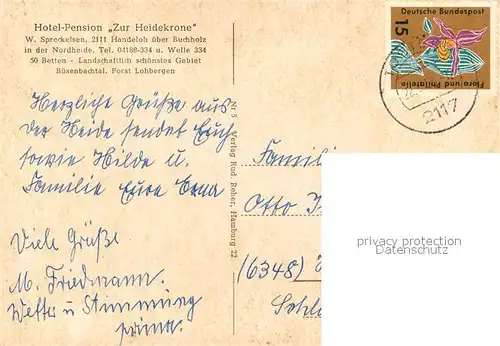 Hotel-Pension „Zur Heidekrone"
W. Spreckelsen, 2111 Handeloh über Buchholz
in der Nordheide, Tel. 04188-334 u. Welle 334
50 Betten - Landschaftlich schönstes Gebiet
Büsenbachtal, Forst Lohbergen
Herzliche Grüße aus
der Heide sendet Euch
sowie Hilde u.
Familie Eure Erna
Viele Grüße
M. Friedmann.
Wetter u Stimmung
prima.
Nr 5 Verlag Rud. Reher, Hamburg 22
Deutsche Bundespost
15
Flora und Philatelie
2117
Familie
Otto
(6348)
privacy protection
Datenschutz